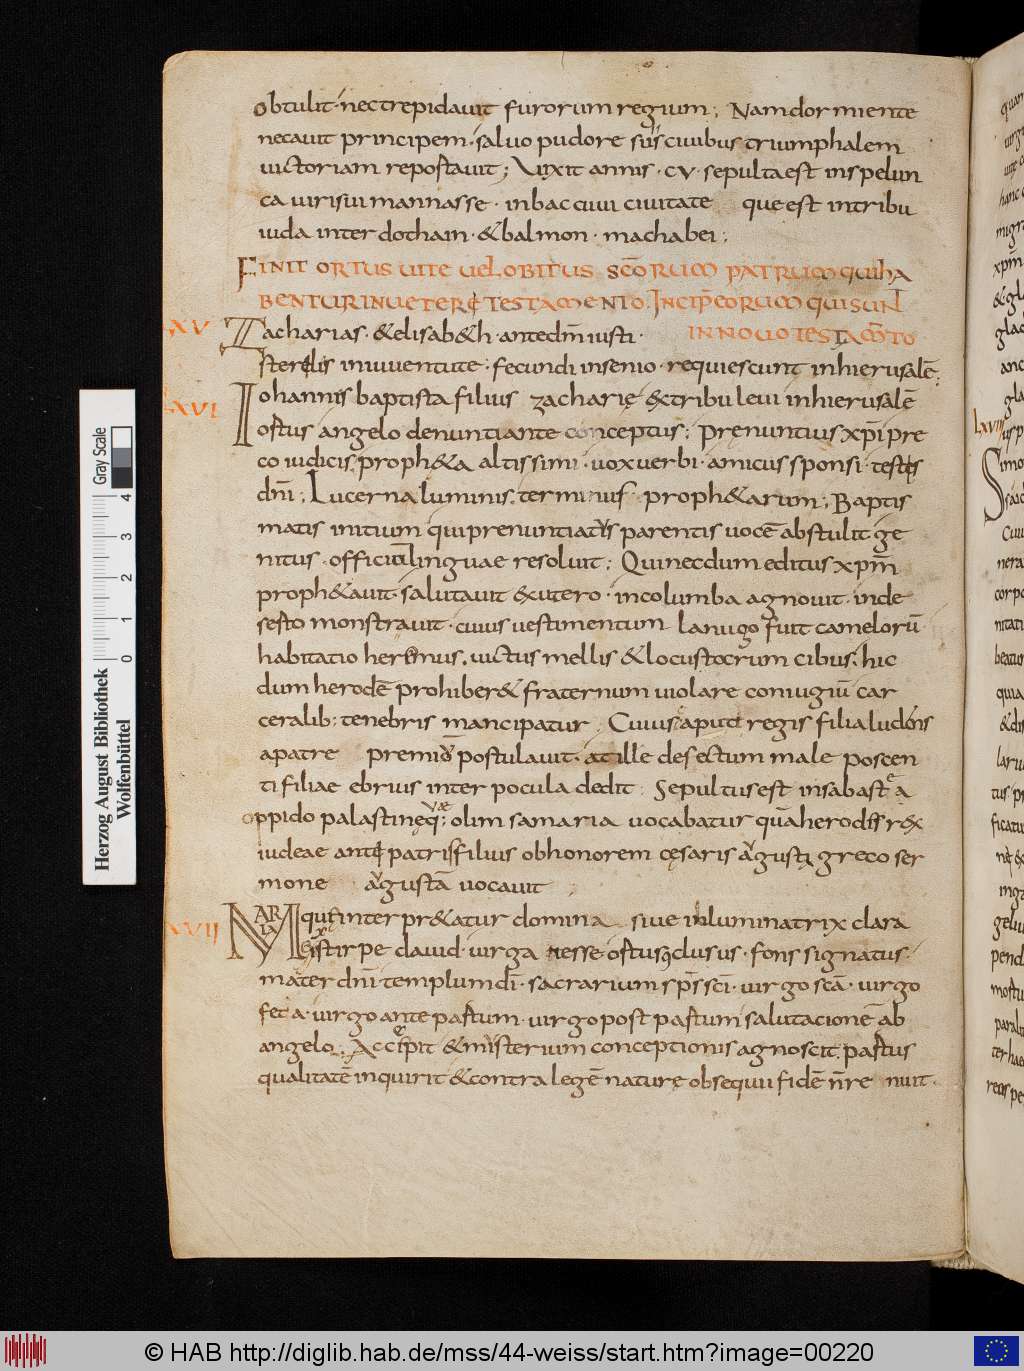 obtulit · nec trepidauit furorum regium ; Nam dormiente
necauit principem · saluo pudore suis ciuibus triumphalem
uictoriam repostauit ; Vixit annis · cv · sepulta est in spelun
ca uiri sui mannasse · in bac cuui ciuitate que est in tribu
iuda inter dothain · & balmon · machabei ;
FINIT ORTUS UITE UEL OBITUS SCORUM PATRUM QUI HA
BENTUR IN UETERE TESTAMENTO. INCIPIT EORUM QUI SUNT
LXV Zacharias · & elisab&h · ante dm̄ iusti · IN NOUO TESTAM̄TO
steriles in iuuentute · fecundi in senio · requiescunt in hierusalē ;
LXVI Iohannis baptista filius zacharię &x tribu leui in hierusalē
ostus angelo denuntiante conceptus ; prenuntius xpi pre
co iudicis proph&a altissimi · uox uerbi · amicus sponsi · testes
dni ; Lucerna luminis · terminus proph&arum ; Baptis
matis initium qui prenuntiatus parentis uocē abstulit ge
nitus · officiū linguae resoluit ; Qui necdum editus xpm̄
proph&auit · salutauit &x utero · in columba agnouit · in de
serto monstrauit · cuius uestimentum lanugo fuit camelorū
habitatio heremus · uictus mellis & locustarum cibus · hic
dum herodē prohiber& fraternum uiolare coniugiū car
ceralib; tenebris mancipatur · Cuius caput regis filia ludens
a patre premio postulauit · at ille desectum male poscen
ti filiae ebrius inter pocula dedit · Sepultus est in sabastea
oppido palastine quae olim samaria uocabatur quā herodes rex
iudeae ante patris filius ob honorem cęsaris augusti greco ser
mone augustā uocauit ;
LXVII MARIA que interpr&atur domina siue inluminatrix clara
ex stirpe dauid uirga iesse ostus clusus · fons signatus ·
mater dni · templum di · sacrarium sps sci · uirgo sca · uirgo
feta · uirgo ante pastum · uirgo post pastum salutacionē ab
angelo · Accepit & misterium conceptionis agnoscit · pastus
qualitatē inquirit & contra legē nature obsequii fidē n̄ re nuit ·
LXVII
Herzog August Bibliothek
Wolfenbüttel
Gray Scale
0 1 2 3 4
© HAB http://diglib.hab.de/mss/44-weiss/start.htm?image=00220